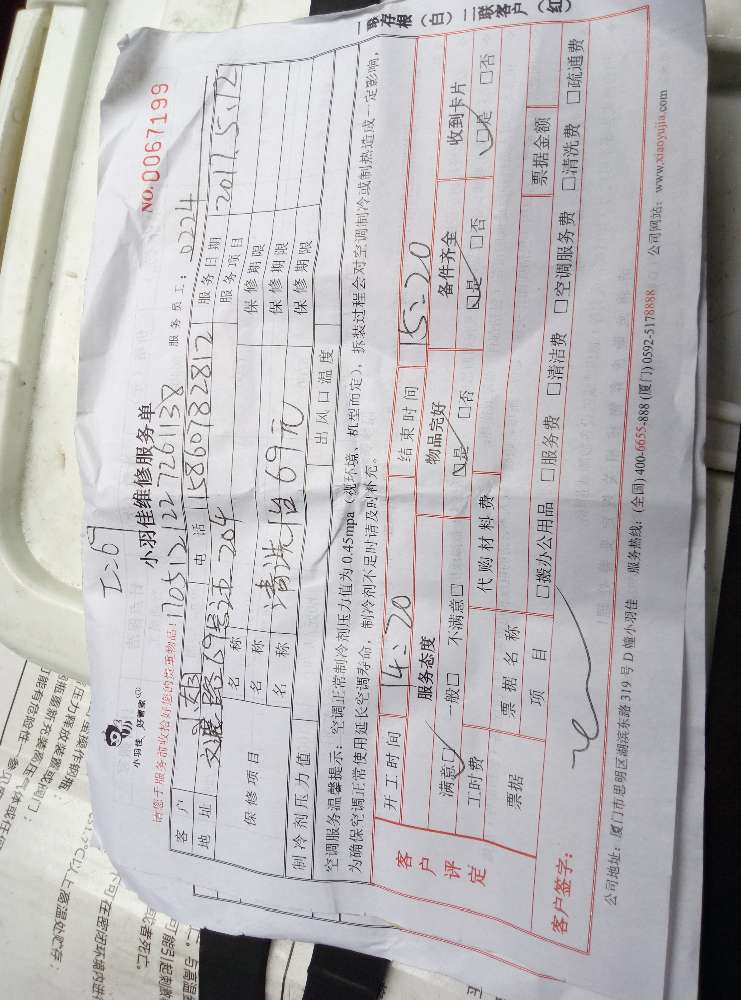 工:69
小羽佳维修服务单
NO.0067199
小羽佳 好管家
请您于服务前收拾好您的贵重物品!
1705121227261138
服务员工: 6224
客户
电话
15860782812
服务日期
2017.5.12
地址
204
服务项目
保修项目
名称
保修期限
名称
保修期限
名称
清洗 69元
保修期限
制冷剂压力值
出风口温度
空调服务温馨提示: 空调正常制冷剂压力值为 0.45mpa (视环境、机型而定), 拆装过程会对空调制冷或制热造成一定影响,
为确保空调正常使用延长空调寿命, 制冷剂不足时请及时补充。
客户评定
开工时间
14:20
结束时间
15:20
服务态度
物品完好
备件齐全
收到卡片
满意□ 一般□ 不满意□
□是 □否
□是 □否
□是 □否
工时费
代购材料费
票据
票据名称
票据金额
项目
□搬办公用品 □服务费 □清洁费 □空调服务费 □清洗费 □疏通费
客户签字:
公司地址: 厦门市思明区湖滨东路 319 号 D 幢小羽佳 服务热线: (全国) 400-6655-888 (厦门) 0592-5178888 公司网站: www.xiaoyujia.com
一联存根 (白) 二联客户 (红)